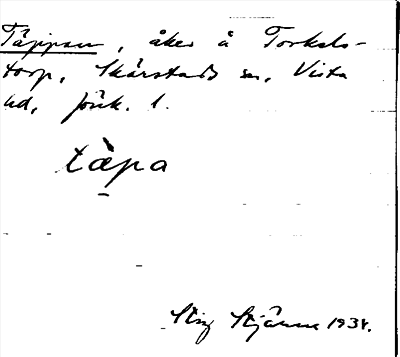 Täppan, åker å Torkels-
torp, Skärstads sn, Vista
hd, Jönk. l.
tàpa
Stig Stjärne 1938.